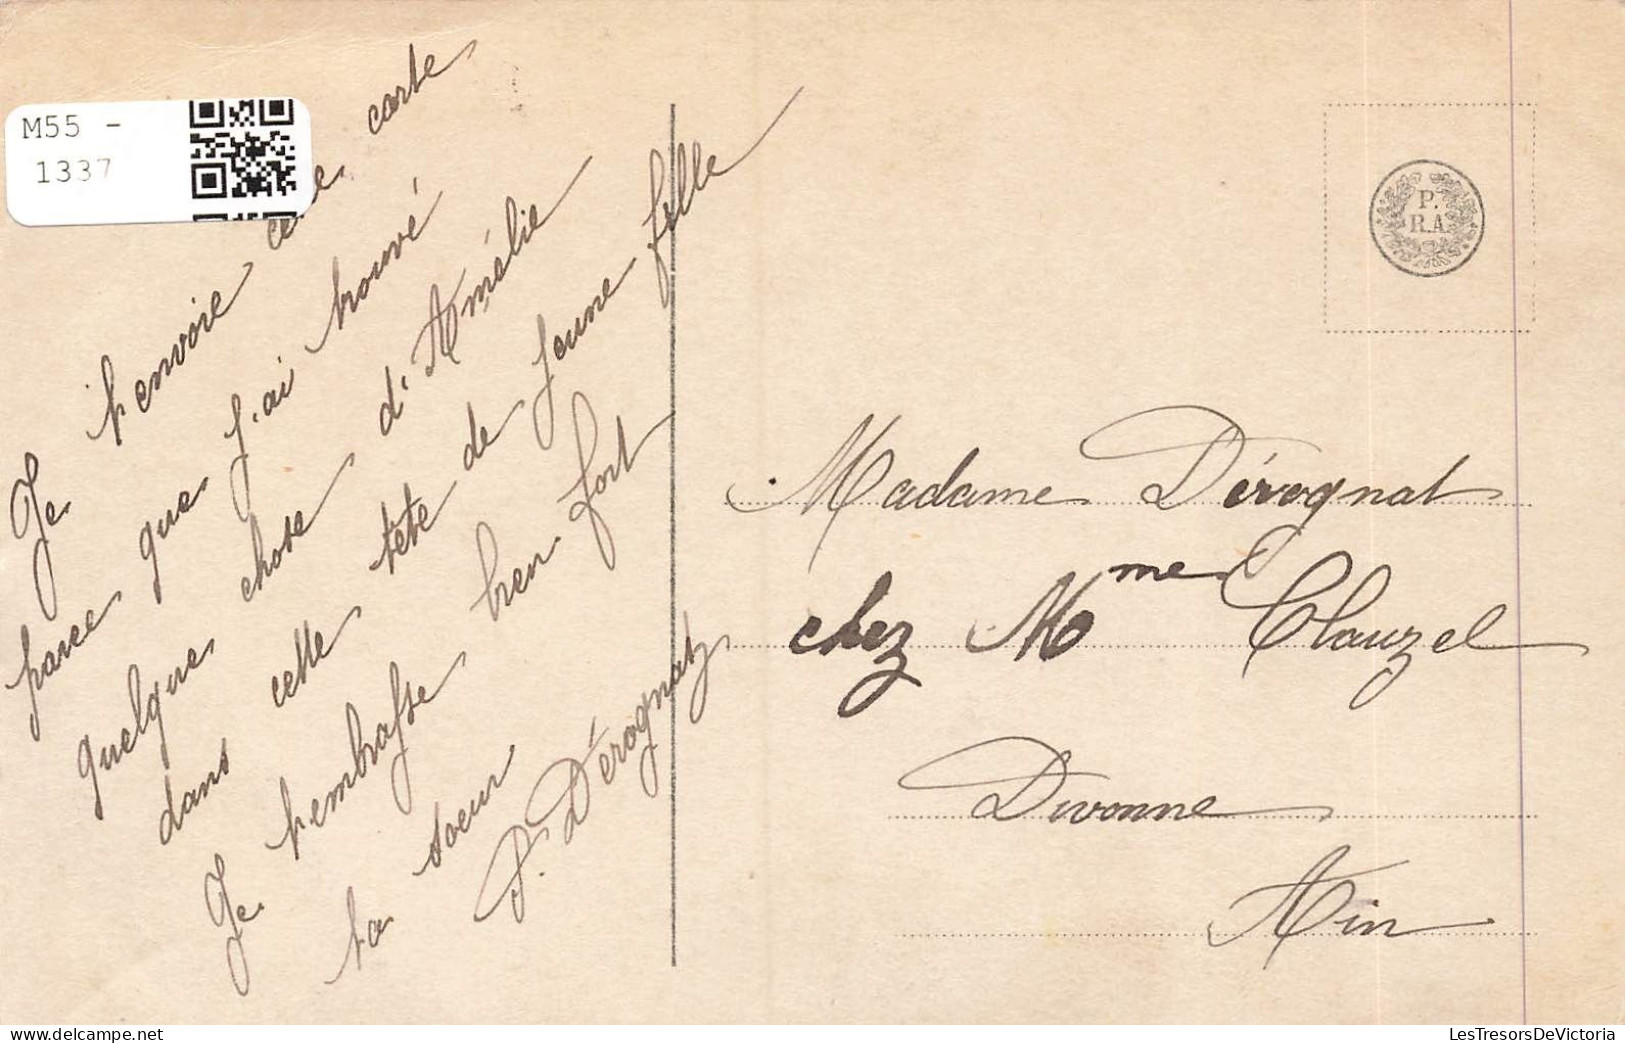 M55 -
1337
Je t'envoie cette carte
parce que j'ai trouvé
quelque chose d'Amélie
dans cette tête de jeune fille
Je t'embrasse bien fort
ta soeur
P. Dérognat
P.
R.A.
Madame Dérognat
chez Mme Clauzel
Divonne
Ain
LesTresorsDeVictoria